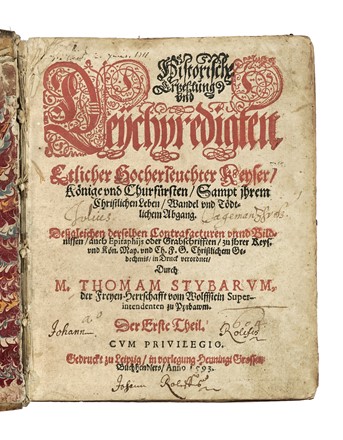 Historische
Erzehlung
vnd
Leychpredigten
Etlicher Hocherleuchter Keyser/
Könige vnd Churfürsten / Sampt jhrem
Christlichen Leben / Wandel vnd Tödt-
lichem Abgang.
Julius
Desgleichen derselben Contrafacturen vnnd Bild-
nissen / auch Epitaphijs oder Grabschrifften / zu jhrer Keys.
vnd Kön. May. vnd Ch. F. G. Christlichem Ge-
dechtnis / in Druck verordnet /
Durch
M. THOMAM STYBARVM,
der Freyen Herrschafft vom Wolffstein Super-
intendenten zu
Der Erste Theil.
Johann
CVM PRIVILEGIO.
Gedruckt zu Leipzig / in vorlegung Hennings Grossen
Buchhendlers / Anno 1593.
Johann